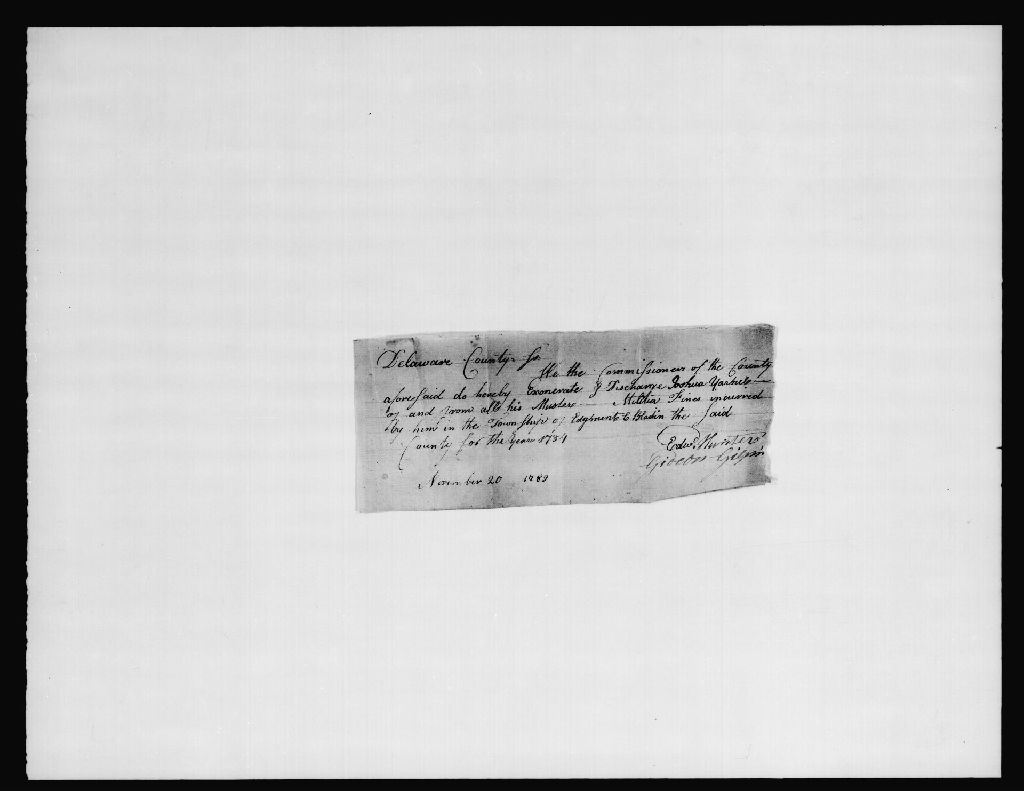 Delaware County Ss
We the Commissioners of the County
aforesaid do hereby Exonerate & Discharge Joshua
of and from all his Muster Militia Fines incurred
by him in the Township of Edgmont in the said
County for the Year 1784
Edwd
Gideon Gilpin
November 20 1789